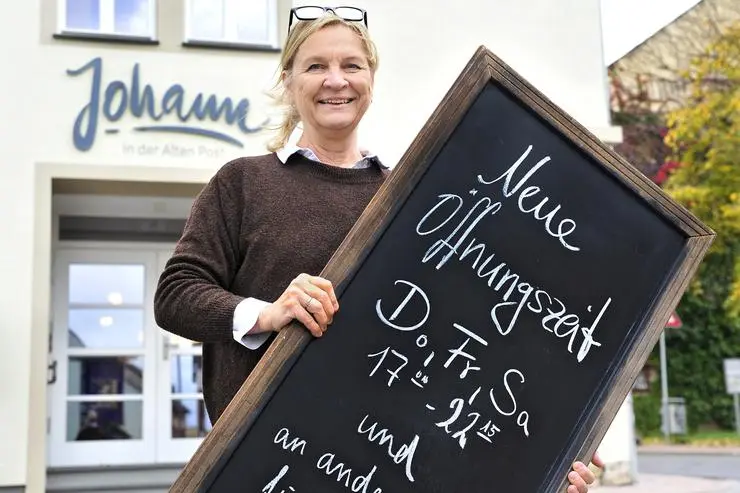 Johann
in der Alten Post
Neue
Öffnungszeit
Do, Fr, Sa
17.00 - 22.15
und
an ande